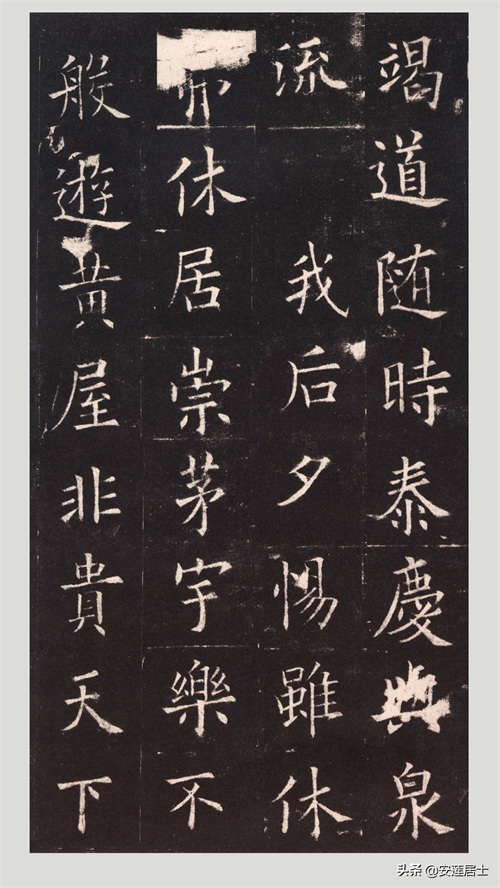 竭道随時泰慶與泉
流 我后夕惕雖休
休居崇茅宇樂不
般遊黄屋非貴天下
头条 @安莲居士